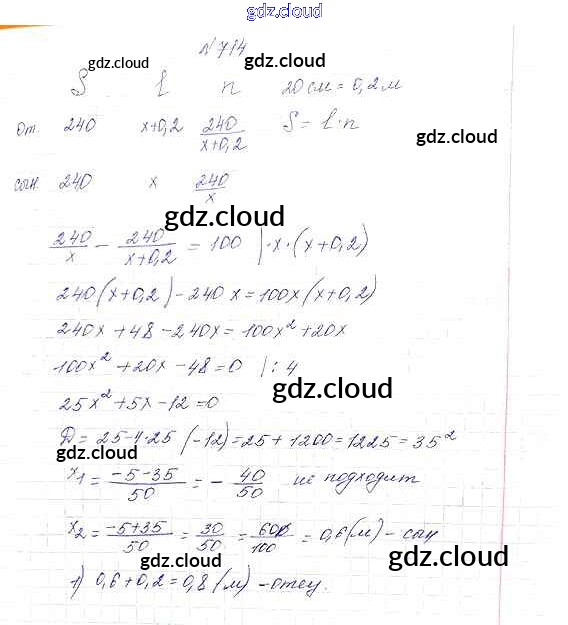 gdz.cloud
№714
gdz.cloud
S l n 20 см = 0,2 м
gdz.cloud
От. 240 x+0,2 240/(x+0,2) S = l·n
gdz.cloud
сын. 240 x 240/x
gdz.cloud
240/x - 240/(x+0,2) = 100 |·x·(x+0,2)
240(x+0,2)-240x=100x(x+0,2)
240x+48-240x=100x²+20x
100x²+20x-48=0 |:4
gdz.cloud
25x²+5x-12=0
D=25-4·25(-12)=25+1200=1225=35²
gdz.cloud
x₁=(-5-35)/50=-40/50 не подходит
x₂=(-5+35)/50=30/50=60/100=0,6(м)-сын
gdz.cloud
1) 0,6+0,2=0,8(м)-отец.
gdz.cloud